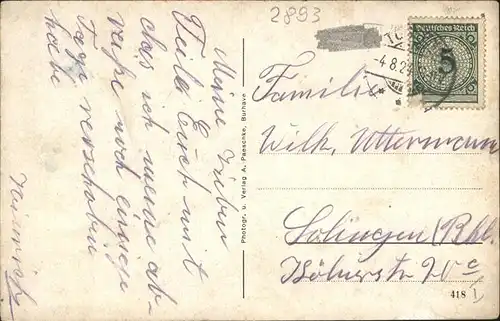 2893
Meine Lieben
Teile Euch mit
das ich meine ab-
reise noch einige
Tage verschoben
habe
Heinrich
Photogr. u. Verlag A. Paeschke, Burhave
-4.8.24
Deutsches Reich
5
Familie
Wilh. Uttermann
Solingen/Rhl.
Kölnerstr. 20 c
418